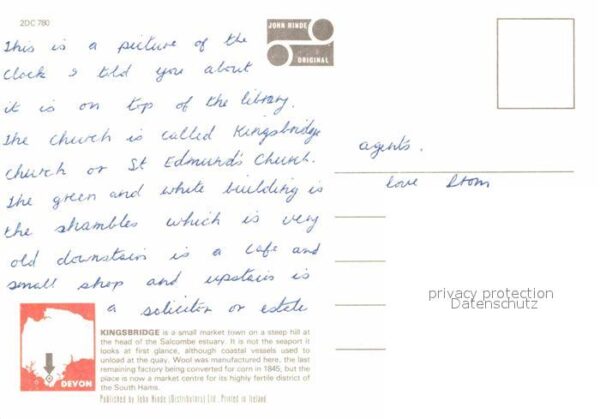 2DC 780
JOHN HINDE
ORIGINAL
This is a picture of the
clock I told you about
it is on top of the library.
The church is called Kingsbridge
church or St Edmund's Church.
The green and white building is
the shambles which is very
old downstairs is a cafe and
small shop and upstairs is
a solicitor or estate
agents.
love
privacy protection
Datenschutz
DEVON
KINGSBRIDGE is a small market town on a steep hill at
the head of the Salcombe estuary. It is not the seaport it
looks at first glance, although coastal vessels used to
unload at the quay. Wool was manufactured here, the last
remaining factory being converted for corn in 1845, but the
place is now a market centre for its highly fertile district of
the South Hams.
Published by John Hinde (Distributors) Ltd. Printed in Ireland